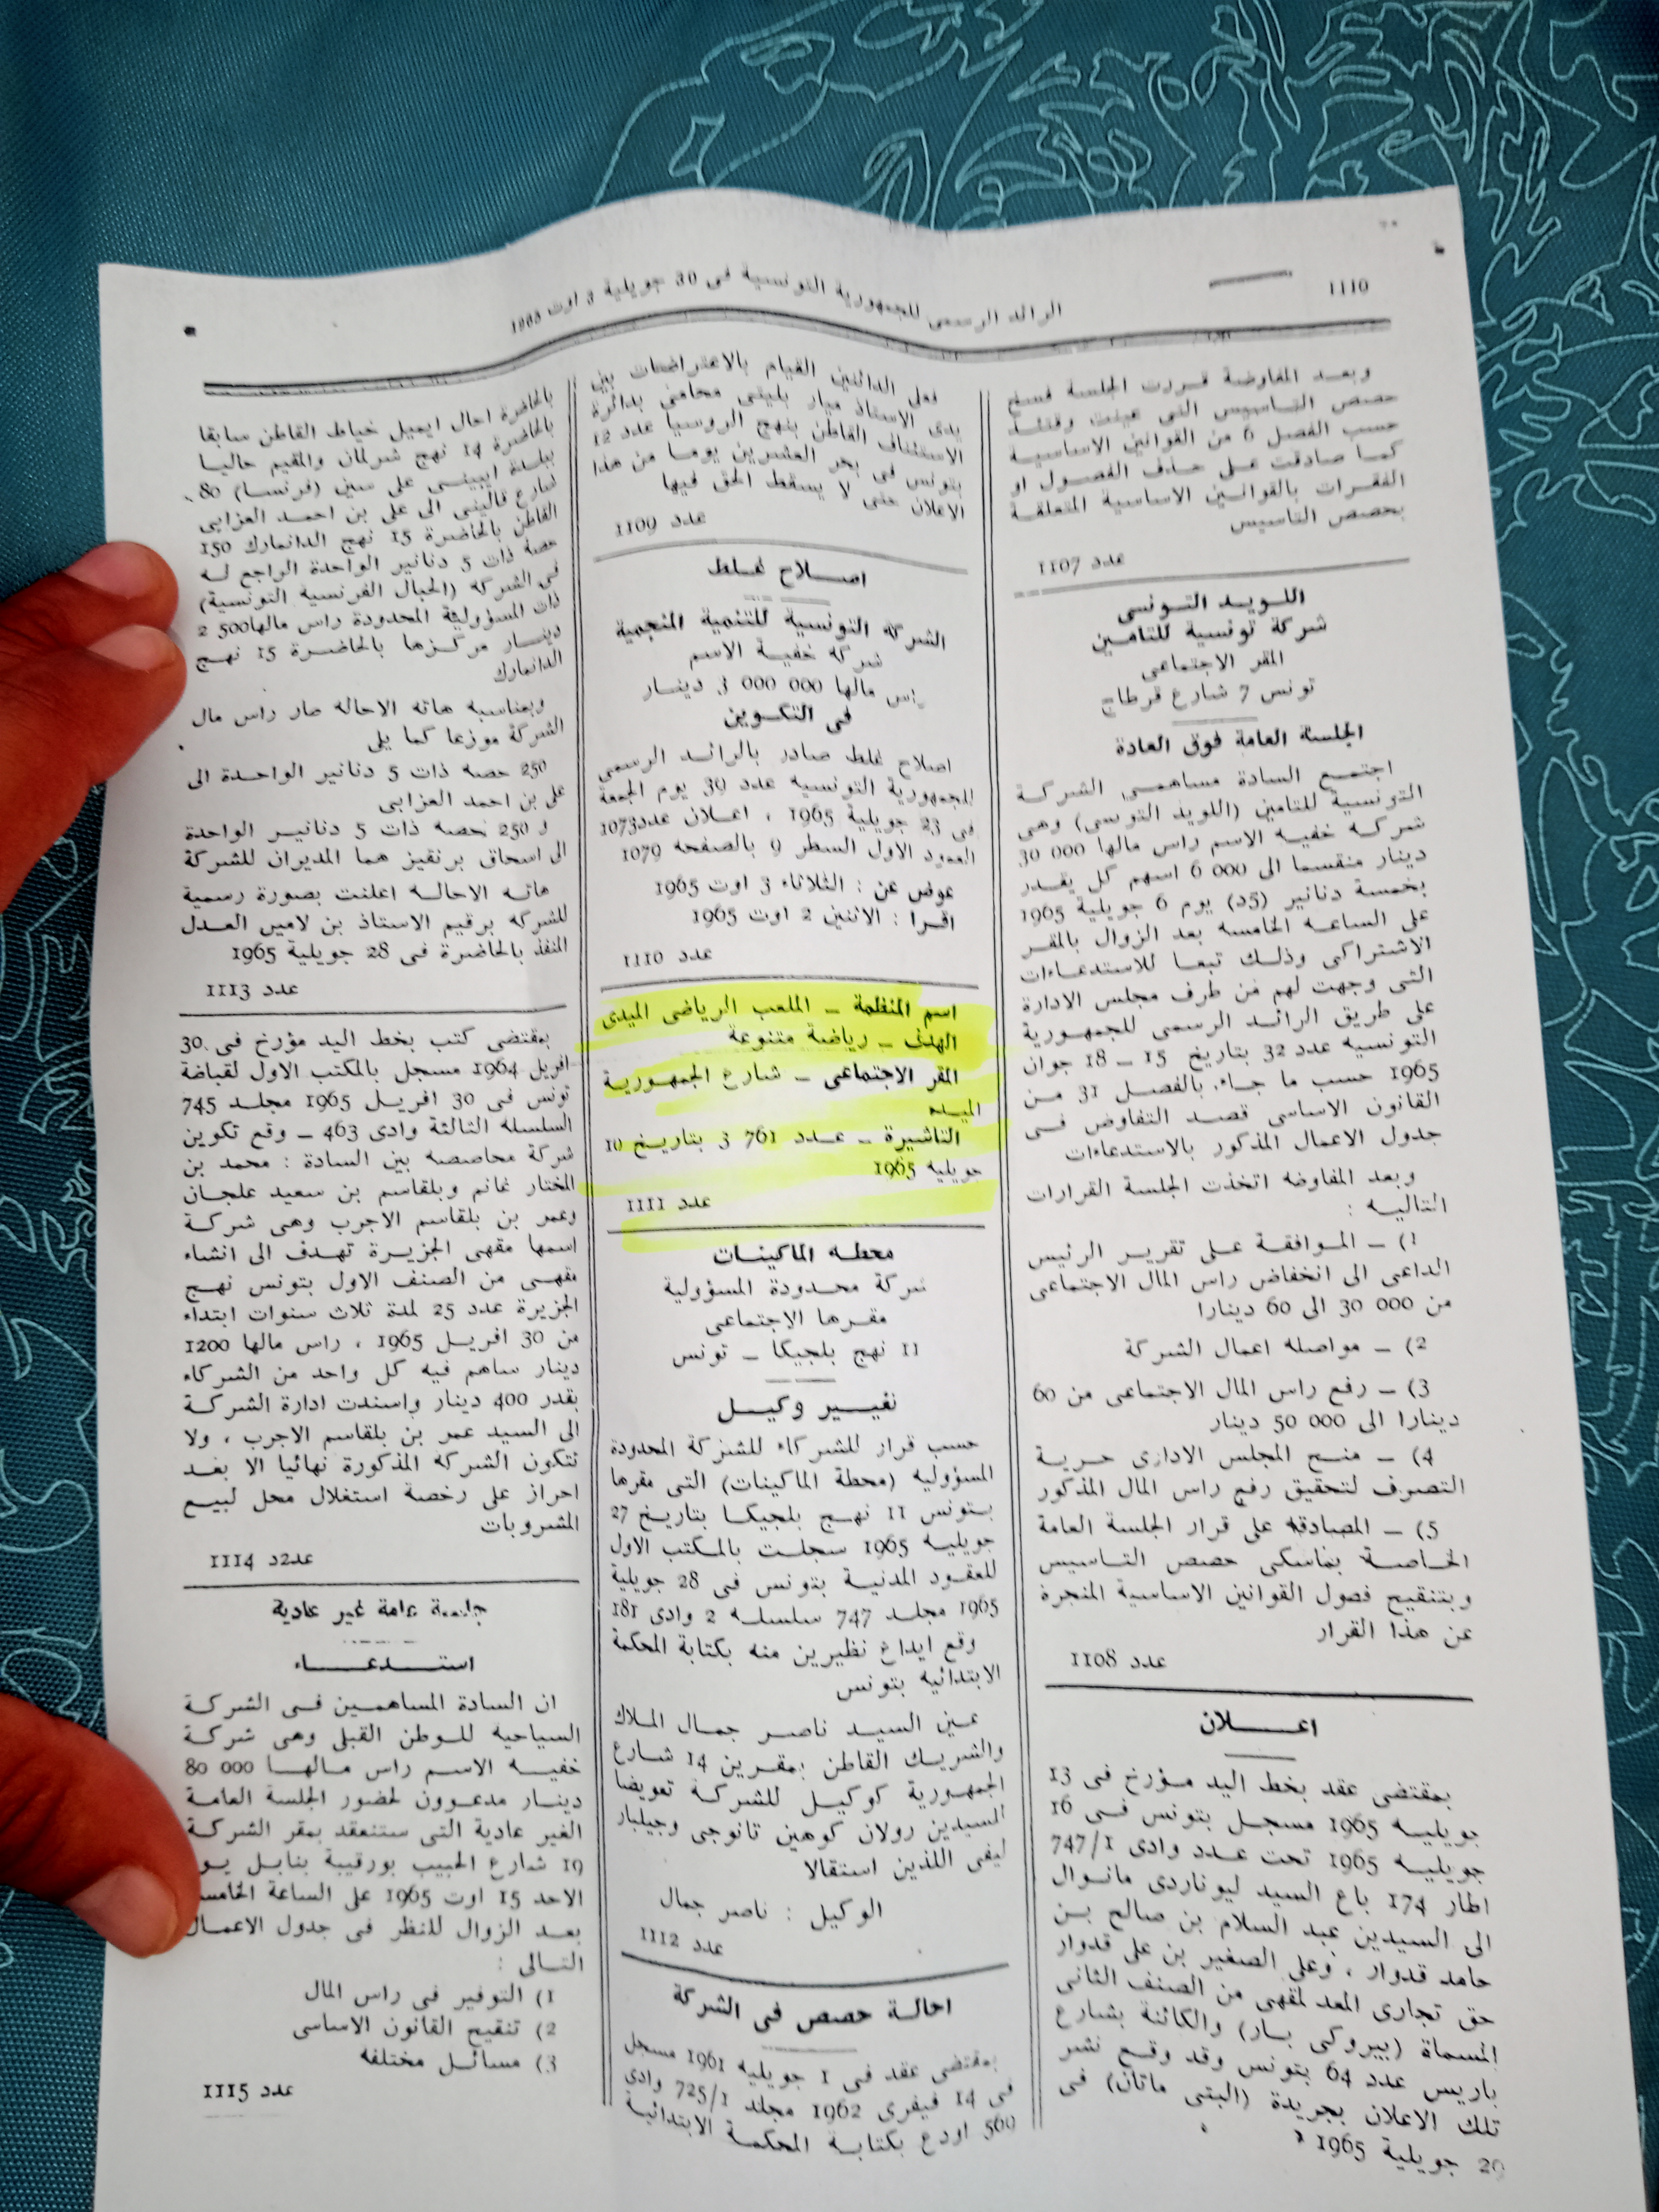 1110
الرائد الرسمي للجمهورية التونسية في 30 جويلية 3 اوت 1965
وبعـد المفاوضة قـررت الجلسة فسخ
حصص التـاسيس التي عينت وقتئـذ
حسب الفصل 6 من القوانين الاساسيـة
كمـا صادقت عـلى حـذف الفصـول او
الفقـرات بالقوانـين الاساسية المتعلقـة
بحصص التاسيس
عدد 1107
اللـويـد التـونسى
شركة تونسية للتامـين
المقر الاجتماعى
تونس 7 شارع قرطاج
الجلسة العامة فوق العادة
اجتمـع السادة مساهمـى الشركـة
التونسية للتامين (اللويد التونسى) وهى
شركـة خفيـة الاسم راس مالها 000 30
دينار منقسما الى 000 6 اسهم كل يقـدر
بخمسة دنانير (5د) يوم 6 جويلية 1965
على الساعـة الخامسة بعد الزوال بالمقـر
الاشتراكى وذلـك تبعـا للاستدعـاءات
التى وجهت لهم من طرف مجلس الادارة
على طريق الرائـد الرسمى للجمهـورية
التونسية عدد 32 بتاريخ 15 – 18 جوان
1965 حسب ما جـاء بالفصـل 31 مـن
القانون الاساسى قصـد التفاوض فـى
جدول الاعمال المذكور بالاستدعاءات
وبعد المفاوضة اتخذت الجلسة القرارات
التاليـة :
1) – المـوافقـة عـلى تقريـر الرئيس
الداعى الى انخفاض راس المال الاجتماعى
من 000 30 الى 60 دينارا
2) – مواصلة اعمال الشركة
3) – رفع راس المال الاجتماعى من 60
دينارا الى 000 50 دينار
4) – منـح المجلس الادارى حـريـة
التصرف لتحقيق رفع راس المال المذكور
5) – المصادقة على قرار الجلسة العامة
الخـاصـة بماسكى حصص التـاسيس
وبتنقيح فصول القوانين الاساسية المنجرة
عن هذا القرار
عدد 1108
اعـــلان
بمقتضى عقد بخط اليد مـؤرخ فى 13
جويليـة 1965 مسجـل بتونس فـى 16
جويليـة 1965 تحت عـدد وادى 747/1
اطار 174 باع السيد ليوناردى مانـوال
الى السيدين عبد السلام بن صالح بـن
حامد قدوار ، وعلى الصغير بن على قدوار
حق تجارى المعد لمقهى من الصنف الثانى
المسماة (بيروكى بـار) والكائنة بشارع
باريس عدد 64 بتونس وقد وقـع نشر
تلك الاعلان بجريدة (البتى ماتان) فى
29 جويلية 1965
فعلى الدائنين القيام بالاعتراضات بين
يدى الاستاذ ميار بليتى محامى بدائرة
الاستئناف القاطن بنهج الروسيا عدد 12
بتونس فى بحر العشرين يومـا من هذا
الاعلان حتى لا يسقط الحق فيها
عدد 1109
اصـــلاح غـلط
الشركة التونسية للتنمية المنجمية
شركة خفيـة الاسم
راس مالها 000 000 3 دينـار
فى التكـوين
اصلاح غلط صادر بالرائـد الرسمى
للجمهورية التونسية عدد 39 يوم الجمعة
فى 23 جويلية 1965 ، اعـلان عدد1073
العمود الاول السطر 9 بالصفحة 1079
عوض عن : الثلاثاء 3 اوت 1965
اقـرا : الاثنين 2 اوت 1965
عدد 1110
اسم المنظمة – الملعب الرياضى الميدى
الهدف – رياضة متنوعة
المقر الاجتماعى – شارع الجمهـوريـة
الميـدة
التاشيرة – عـدد 761 3 بتاريـخ 10
جويلية 1965
عدد 1111
محطـة الماكينـات
شركة محـدودة المسؤولية
مقـرها الاجتماعى
11 نهج بلجيكا – تونس
تغيـــير وكيـــل
حسب قرار للشركاء للشركة المحدودة
المسؤولية (محطة الماكينات) التى مقرها
بـتونس 11 نهـج بلجيكـا بتاريـخ 27
جويليـة 1965 سجلـت بالمـكتب الاول
للعقـود المدنيـة بتونس فى 28 جويلية
1965 مجلـد 747 سلسلـة 2 وادى 181
وقع ايداع نظيرين منه بكتابة المحكمة
الابتدائية بتونس
عـين السيـد ناصـر جمـال المـلاك
والشريـك القاطن بمقـرين 14 شـارع
الجمهـورية كوكيـل للشركـة تعويضا
للسيدين رولان كوهين تانوجى وجيلبار
ليفى اللذين استقالا
الوكيل : ناصر جمال
عدد 1112
احالـة حصص فى الشركة
بمقتضى عقد فى 1 جويلية 1961 مسجل
فى 14 فيفرى 1962 مجلد 725/1 وادى
569 اودع بكتابـة المحكمـة الابتدائيـة
بالحاضرة احال ايميل خياط القاطن سابقا
بالحاضرة 14 نهج شرلمان والمقيم حاليـا
ببلـدة ايبينـى على سين (فرنسـا) 80
شارع قالينى الى على بن احمـد العزابى
القاطن بالحاضرة 15 نهج الدانمارك 150
حصة ذات 5 دنانير الواحدة الراجع لـه
فى الشركة (الحبال الفرنسية التونسية)
ذات المسؤولية المحدودة راس مالها500 2
دينـار مركـزها بالحاضـرة 15 نهـج
الدانمارك
وبمناسبة هاته الاحالة صار راس مال
الشركة موزعا كما يلى
250 حصة ذات 5 دنانير الواحـدة الى
على بن احمد العزابى
و 250 حصة ذات 5 دنانيـر الواحدة
الى اسحاق برنقيز هما المديران للشركة
هاتـه الاحالـة اعلنت بصورة رسمية
للشركة برقيم الاستاذ بن لامين العـدل
المنفذ بالحاضرة فى 28 جويلية 1965
عدد 1113
بمقتضى كتب بخط اليد مؤرخ فى 30
افريل 1964 مسجل بالمكتب الاول لقباضة
تونس فى 30 افريـل 1965 مجلـد 745
السلسلة الثالثة وادى 463 – وقع تكوين
شركة محاصصة بين السادة : محمد بن
المختار غانم وبلقاسم بن سعيد علجـان
وعمر بن بلقاسم الاجرب وهى شركـة
اسمها مقهى الجزيـرة تهـدف الى انشاء
مقهـى من الصنف الاول بتونس نهـج
الجزيرة عدد 25 لمدة ثلاث سنوات ابتداء
من 30 افريـل 1965 ، راس مالها 1200
دينار ساهم فيه كل واحد من الشركاء
بقدر 400 دينار واسندت ادارة الشركـة
الى السيد عمر بن بلقاسم الاجرب ، ولا
تتكون الشركة المذكورة نهائيا الا بعـد
احراز على رخصة استغلال محل لبيـع
المشروبات
عدد 1114
جلسة عامة غير عادية
استـــدعـــاء
ان السادة المساهمـين فـى الشركـة
السياحية للـوطن القبلى وهى شركـة
خفيـة الاسـم راس مـالهـا 000 80
دينـار مدعـوون لحضور الجلسة العامـة
الغير عادية التى ستنعقد بمقر الشركـة
19 شارع الحبيب بورقيبة بنابـل يـو
الاحد 15 اوت 1965 على الساعة الخامسـ
بعـد الزوال للنظر فى جدول الاعمـال
التـالى :
1) التوفير فى راس المال
2) تنقيح القانون الاساسى
3) مسائـل مختلفة
عدد 1115